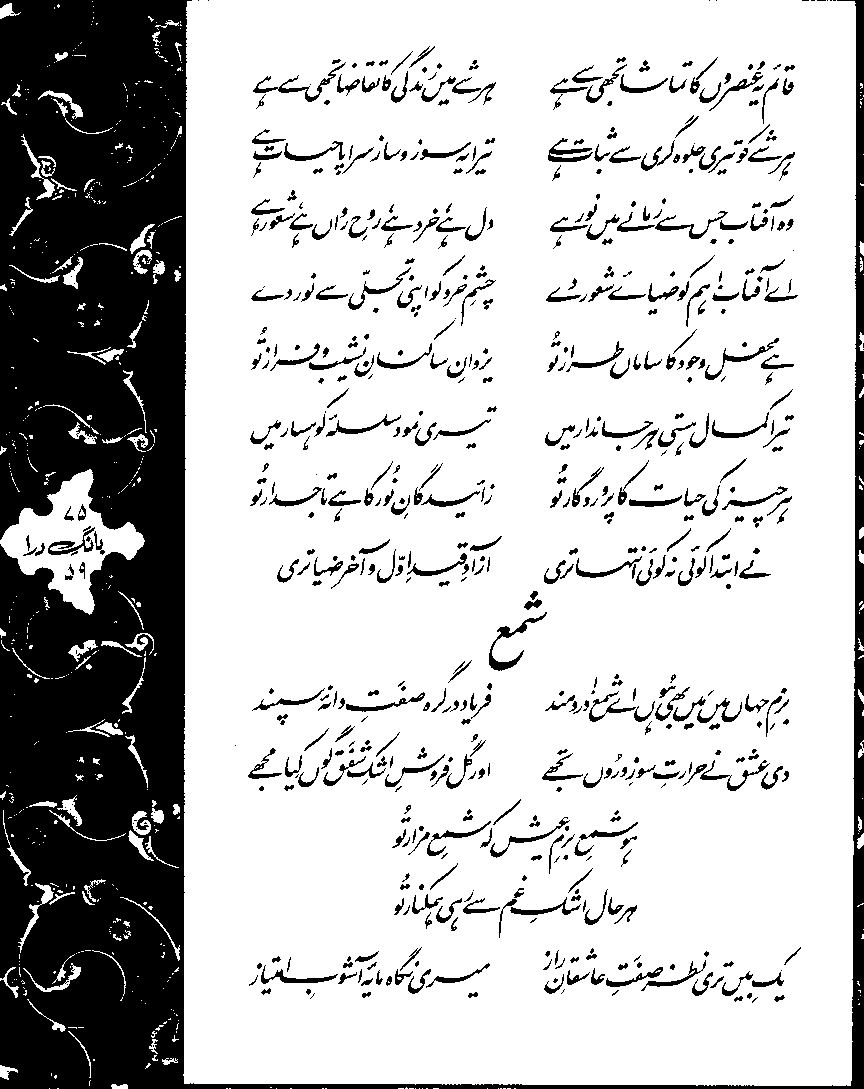 قائم یہ عنصروں کا تماشا تجھی سے ہے ہر شے میں زندگی کا تقاضا تجھی سے ہے
ہر شے کو تیری جلوہ گری سے ثبات ہے تیرا یہ سوز و ساز سراپا حیات ہے
وہ آفتاب جس سے زمانے میں نور ہے دل ہے، خرد ہے، روح رواں ہے، شعور ہے
اے آفتاب! ہم کو ضیائے شعور دے چشمِ خرد کو اپنی تجلّی سے نور دے
ہے محفلِ وجود کا ساماں طراز تُو یزدانِ ساکنانِ نشیب و فراز تُو
تیرا کمال ہستیِ ہر جاندار میں تیری نمود سلسلۂ کوہسار میں
ہر چیز کی حیات کا پروردگار تُو زائیدگانِ نُور کا ہے تاجدار تُو
نے ابتدا کوئی نہ کوئی انتہا تری آزادِ قیدِ اوّل و آخر ضیا تری
شمع
بزمِ جہاں میں مَیں بھی ہُوں اے شمع! دردمند فریاد در گرہ صفَتِ دانۂ سپند
دی عشق نے حرارتِ سوزِ درُوں تجھے اور گُل فروشِ اشکِ شفَق گوں کِیا مجھے
ہو شمعِ بزمِ عیش کہ شمعِ مزار تُو
ہر حال اشکِ غم سے رہی ہمکنار تُو
یک بیں تری نظر صفَتِ عاشقانِ راز میری نگاہ مایۂ آشوبِ امتیاز
۷۵
بانگِ درا
۵۹